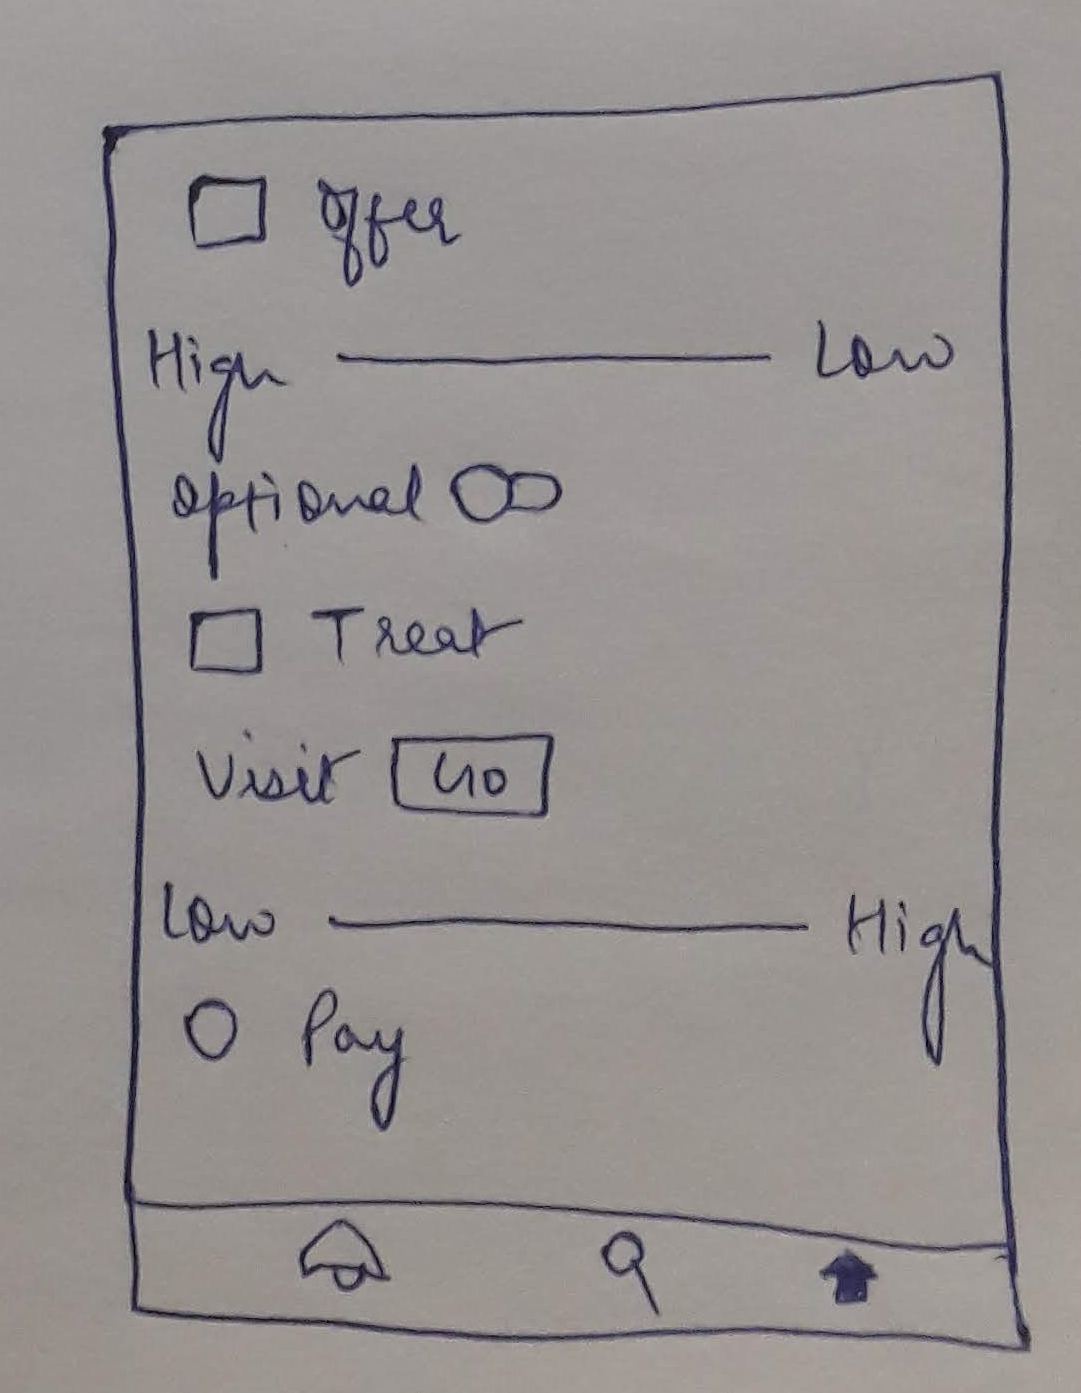 Offer
High Low
Optional
Treat
Visit Go
Low High
Pay